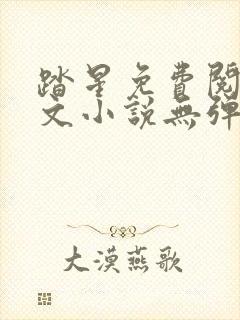 踏星免費閱
文小說無彈
大漠燕歌